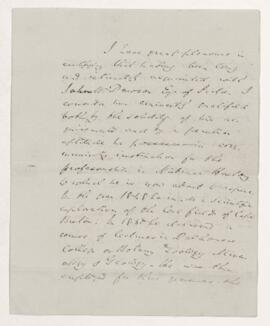 I have great pleasure in
certifying that having been long
and intimately acquainted with
John W. Dawson Esq of Pictou I
consider him eminently qualified
both by the solidity of his
and by a peculiar
aptitude he possesses in
communicating instruction for the
professorship in Natural History
to which he is now about to aspire
In the year 1848 he made a scientific
exploration of the coal fields of Cape
Breton. In 1850 he delivered a
course of lectures in Dalhousie
College on Botany Zoology Miner-
alogy & Geology. He was then
employed for three years as the